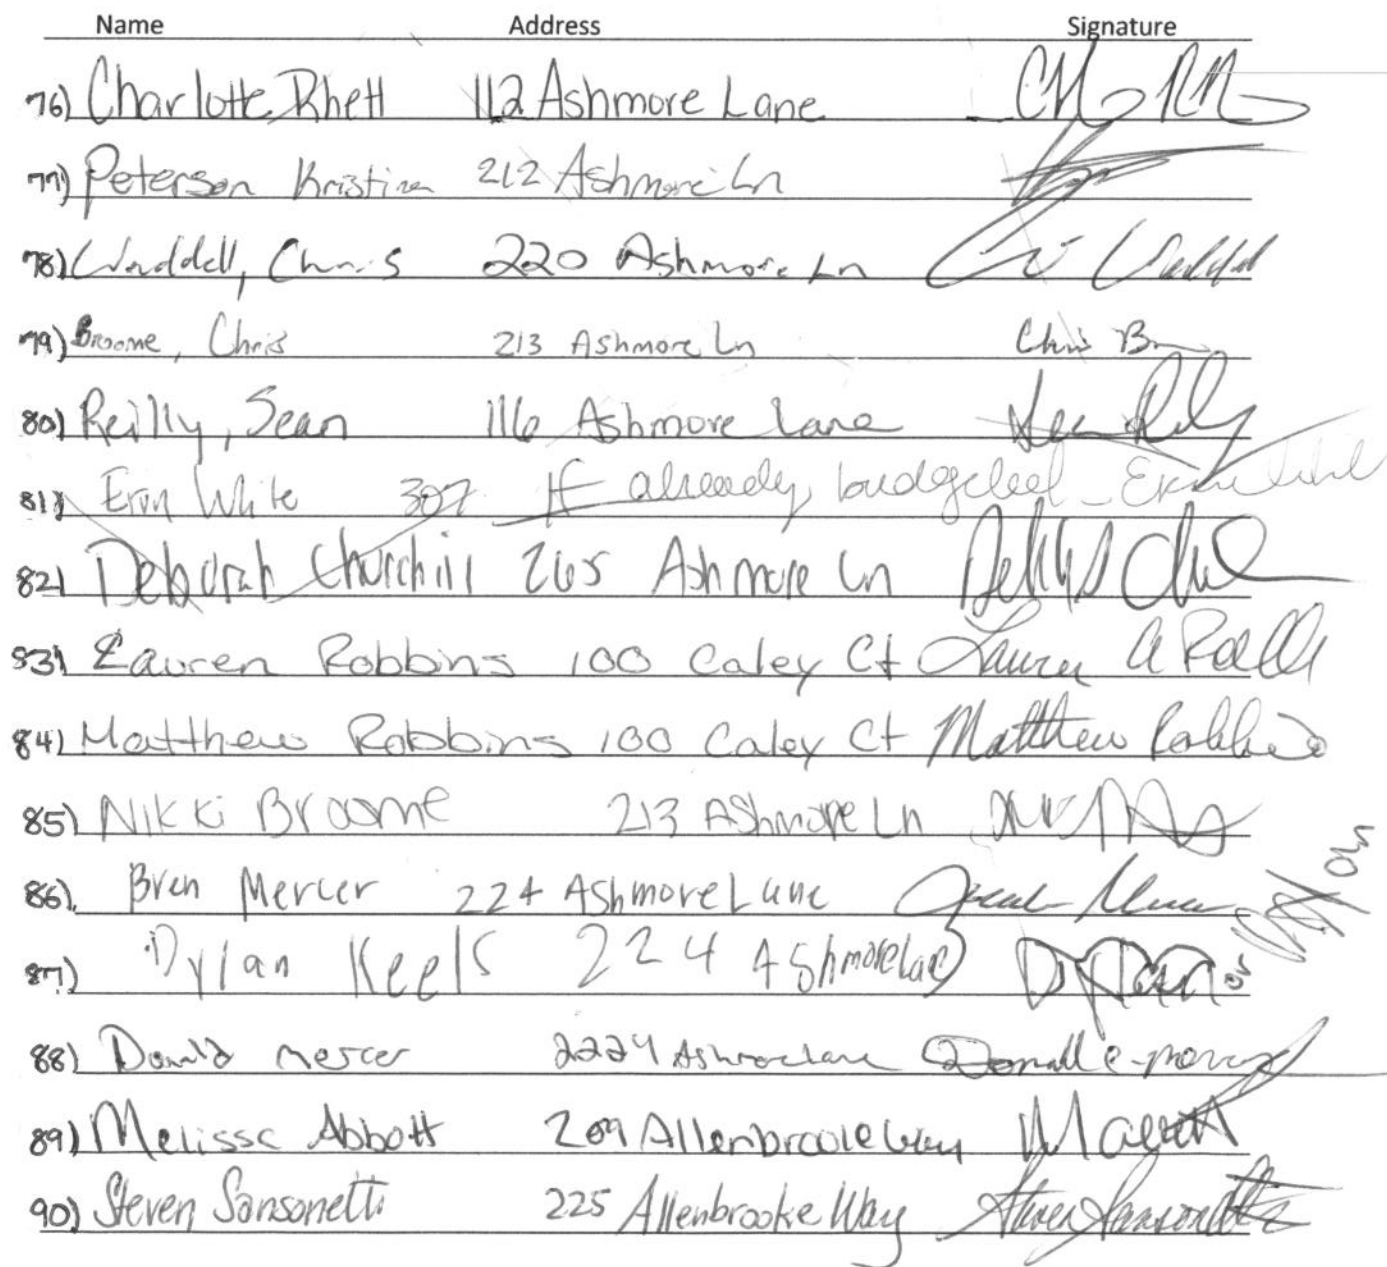 Name Address Signature
76) Charlotte Rhett 112 Ashmore Lane
77) Peterson Kristina 212 Ashmore Ln
78) Waddell, Chris 220 Ashmore Ln
79) Broome, Chris 213 Ashmore Ln Chris B
80) Reilly, Sean 116 Ashmore Lane Sean
81) Erin White 307 If already budgeted - Erin White
82) Deborah Churchill 265 Ashmore Ln
83) Lauren Robbins 100 Caley Ct Lauren A
84) Matthew Robbins 100 Caley Ct Matthew Robbins
85) Nikki Broome 213 Ashmore Ln
86) Bren Mercer 224 Ashmore Lane
87) Dylan Keels 224 Ashmore Lane Dylan or Dylan
88) Donald Mercer 2224 Ashmore Lane Donald e-mercer
89) Melissa Abbott 209 Allenbrooke Way
90) Steven Sansonetti 225 Allenbrooke Way Steven Sansonetti